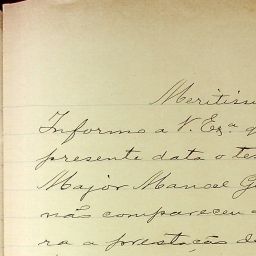 Meritiss
Informo a V. Exª. q
presente data o te
Major Manoel G
não compareceu
ra a prestação d